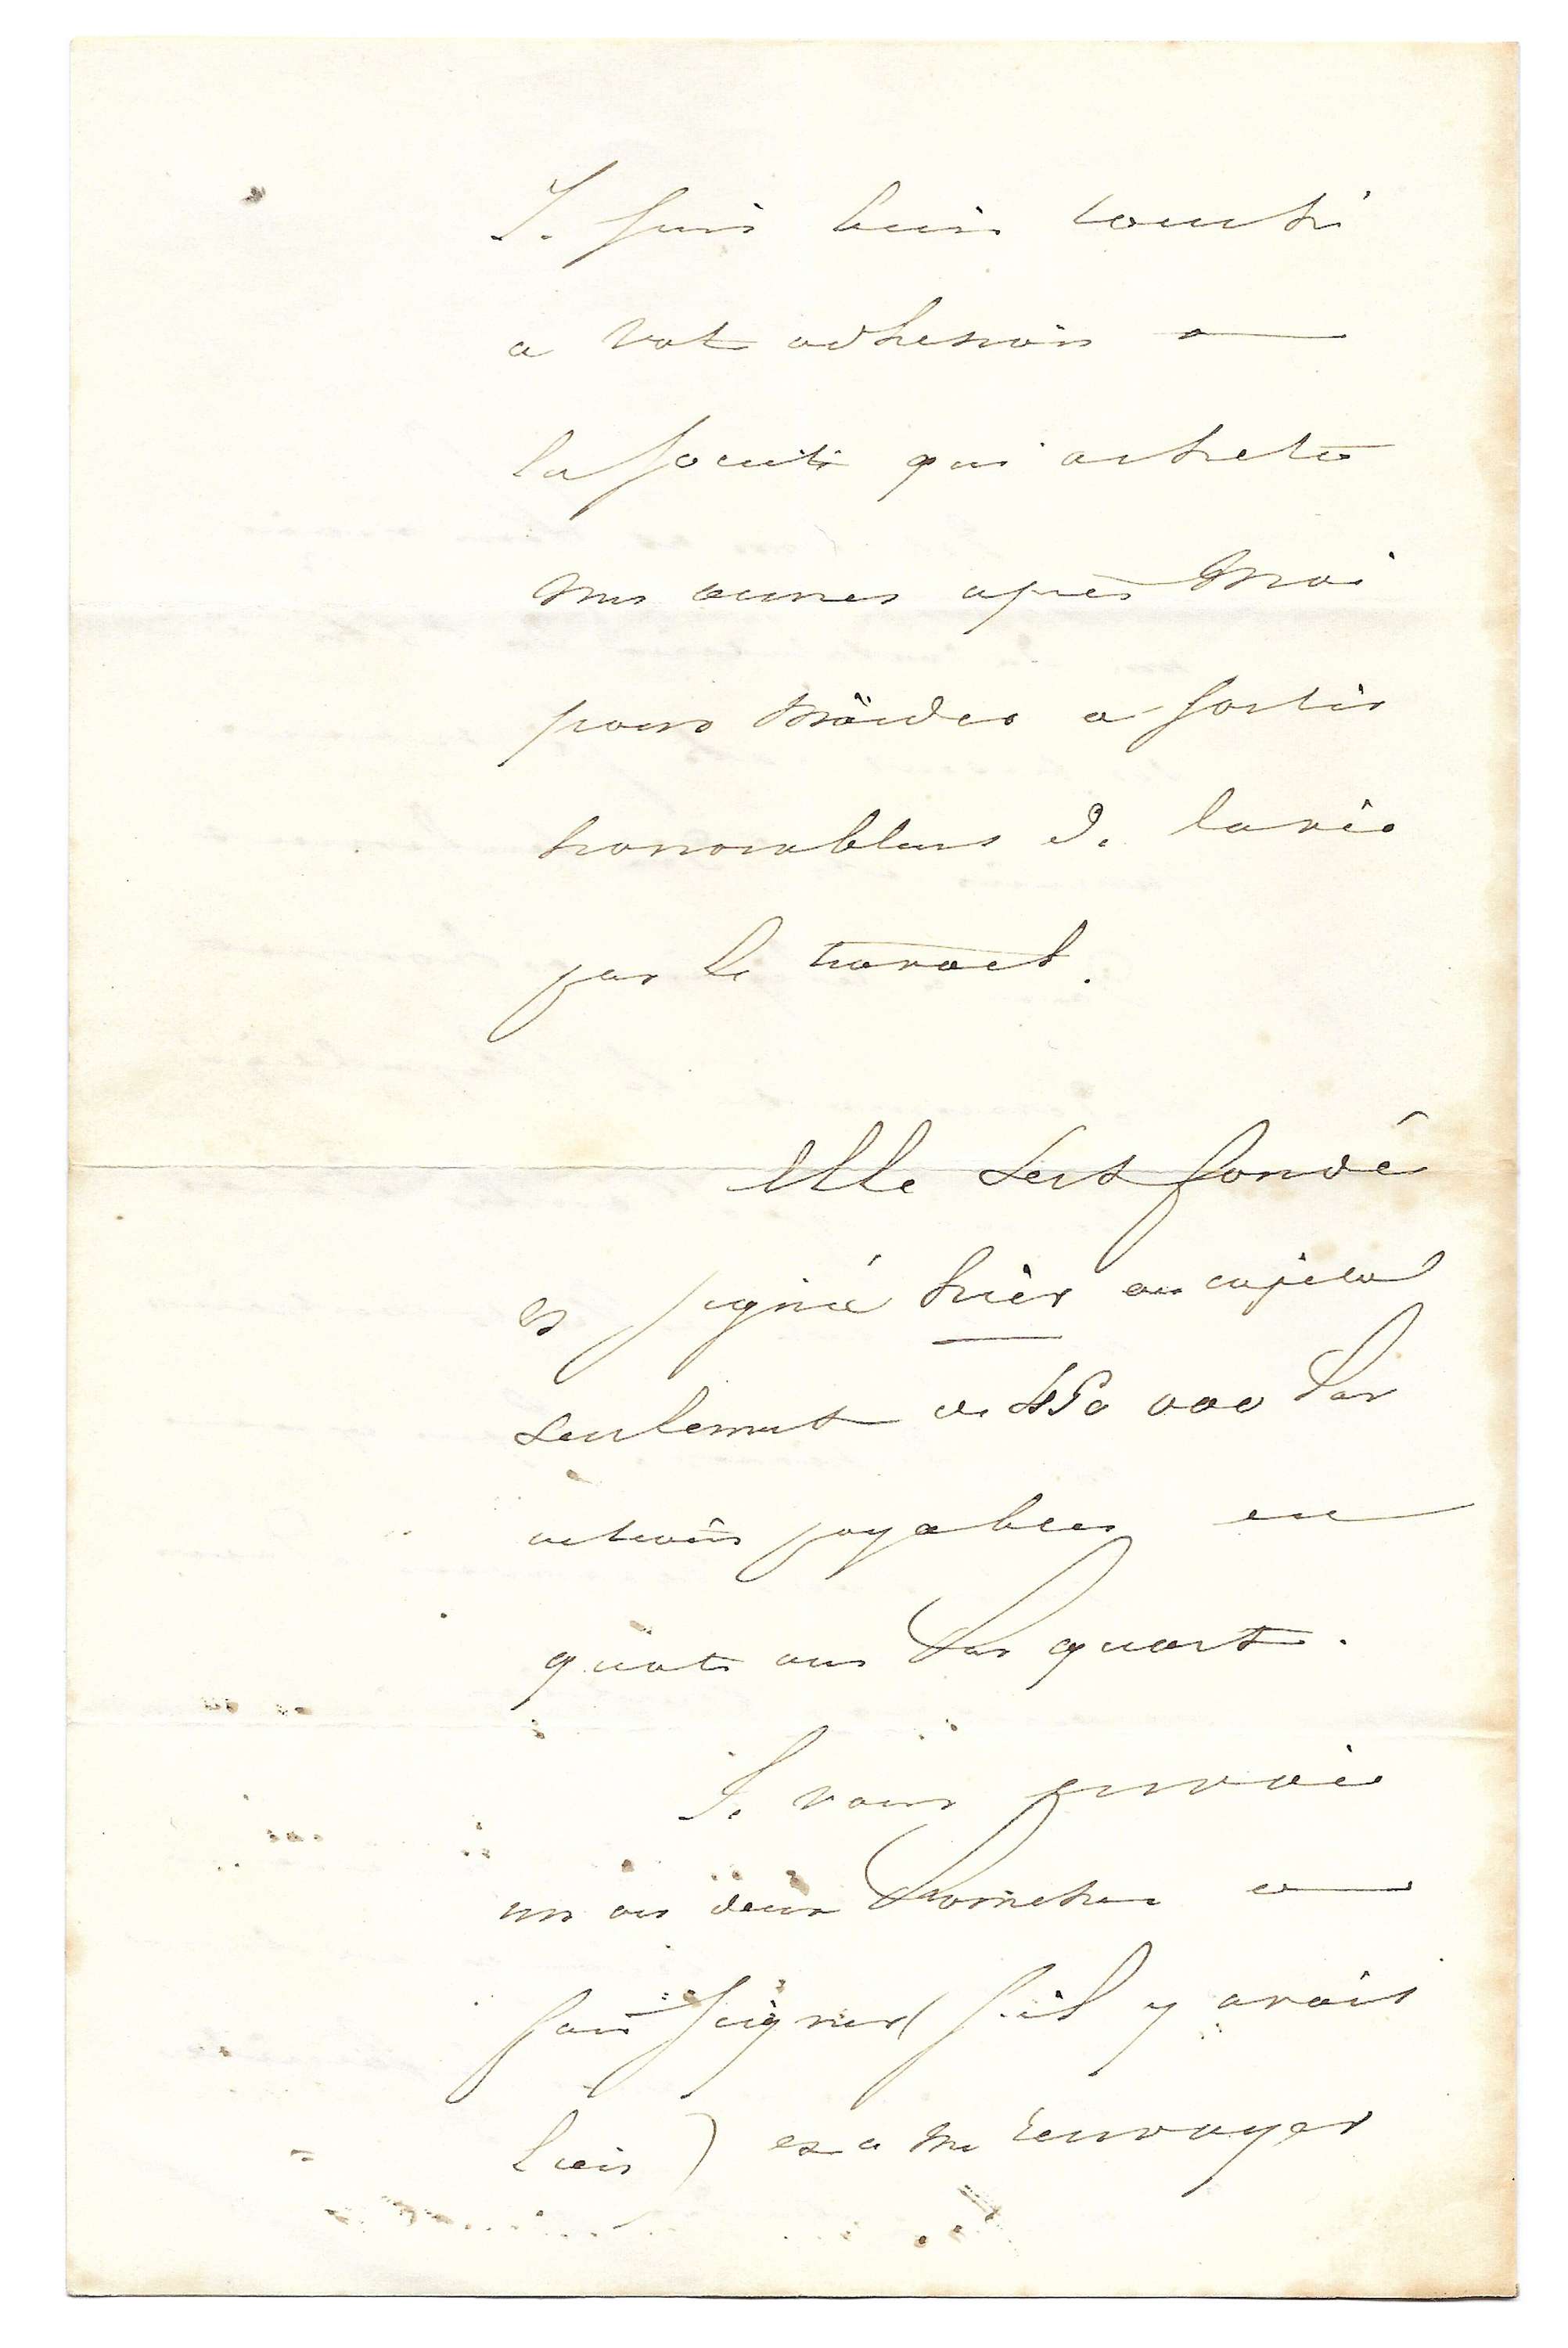 Je suis bien touché
a votre adhesion a
la Société qui achete
mes œuvres après moi
pour m'aider a sortir
honorablemt de la vie
par le travail.
Elle s'est fondé
et signée hier au capital
seulement de 450 000 par
actions payables en
quatre ans par quart.
Je vous envoie
un ou deux a
faire signer (s'il y avait
lieu) et a me renvoyer